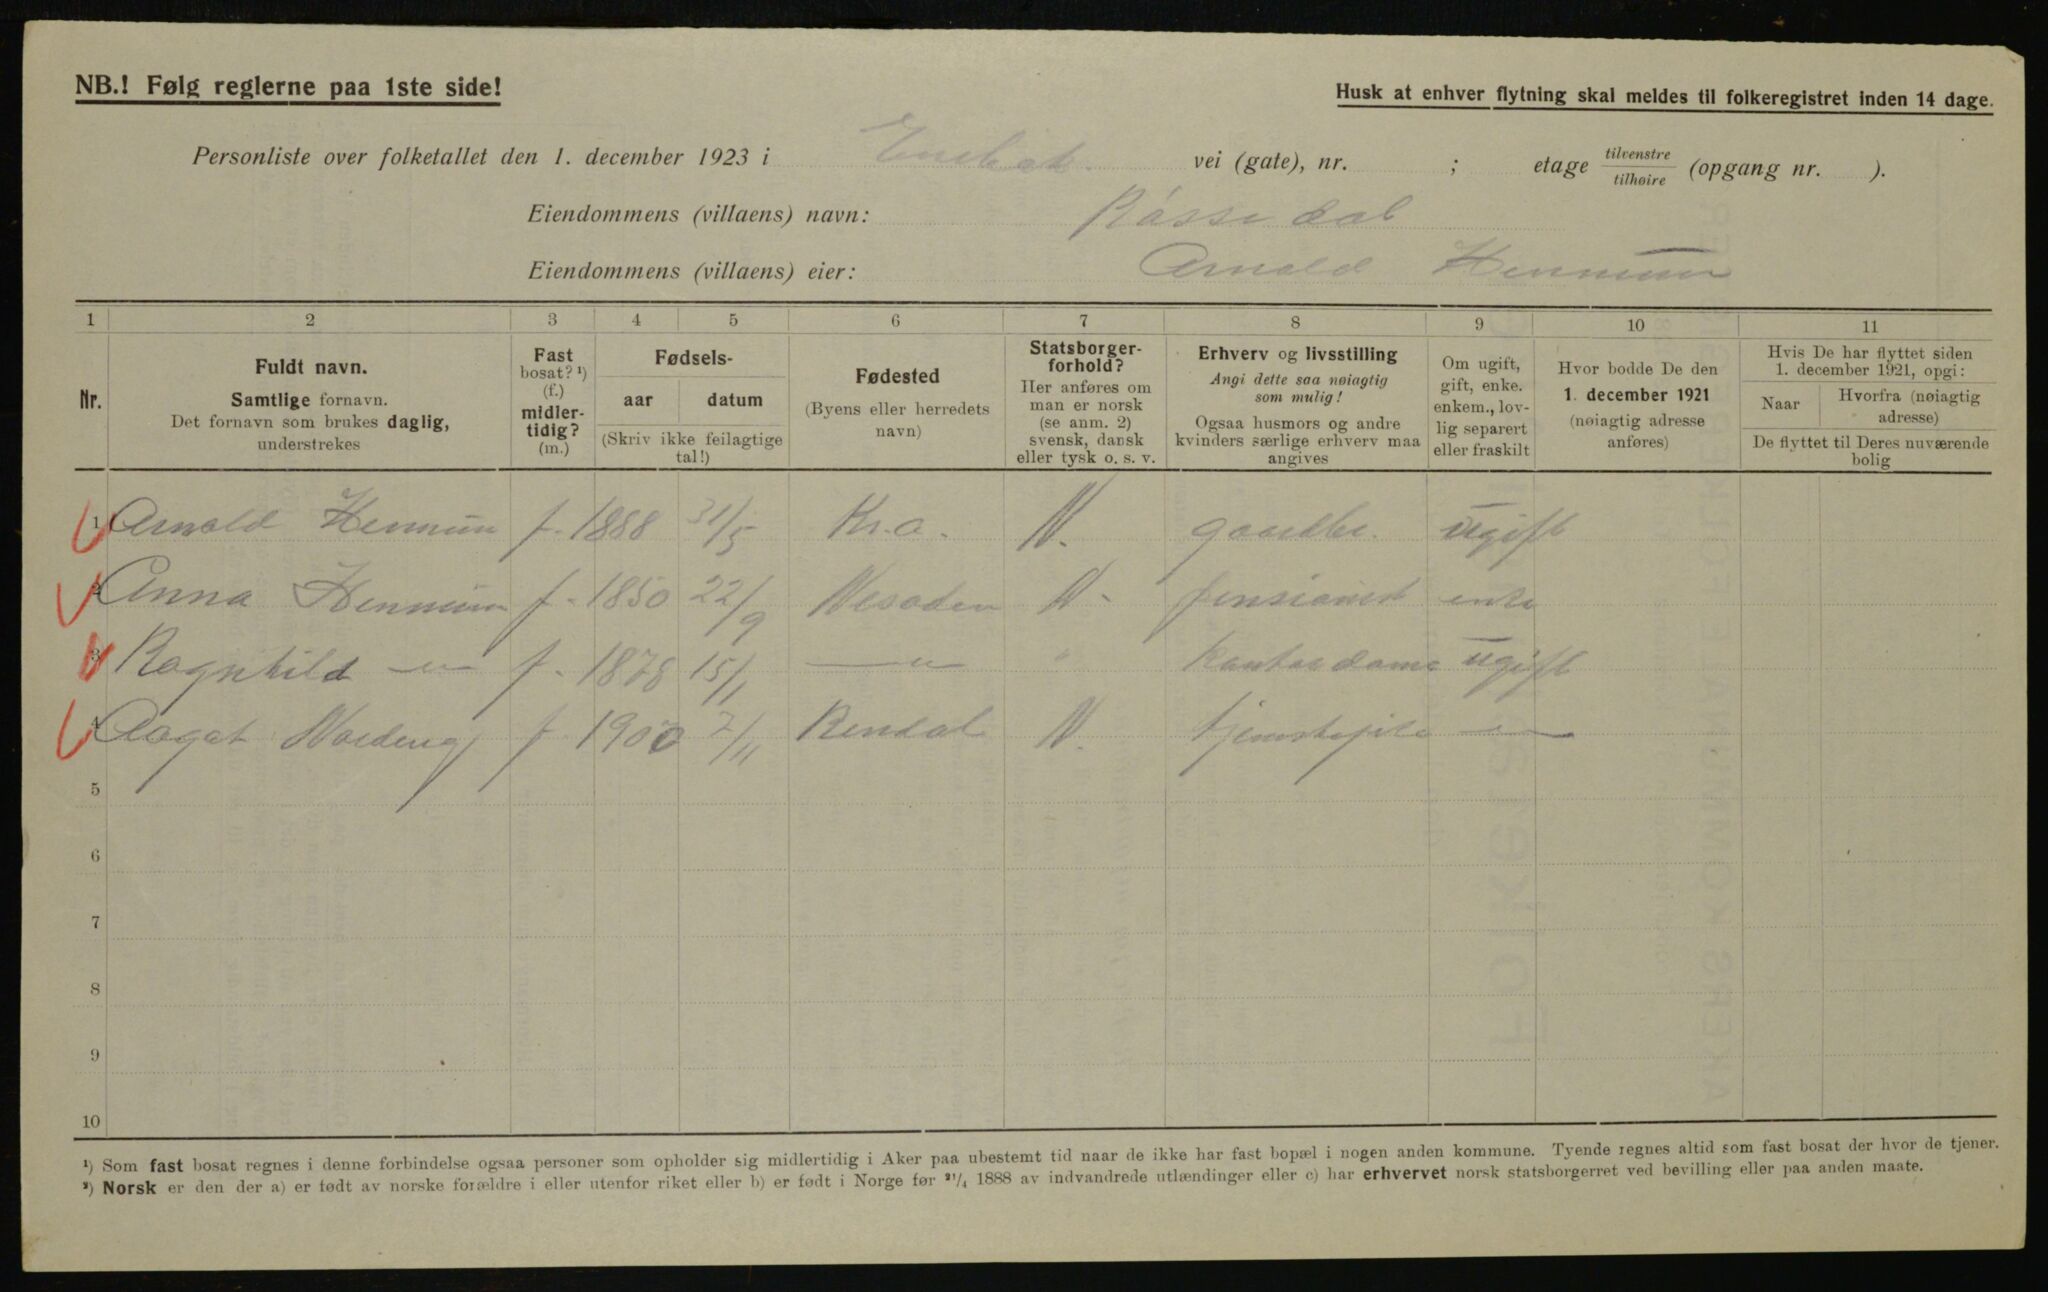 NB.! Følg reglerne paa 1ste side!
Husk at enhver flytning skal meldes til folkeregistret inden 14 dage.
Personliste over folketallet den 1. december 1923 i Enebak vei (gate), nr. ; etage tilvenstre tilhøire (opgang nr. ).
Eiendommens (villaens) navn:
Eiendommens (villaens) eier: Arnold Hennum
1 2 3 4 5 6 7 8 9 10 11
Nr.
Fuldt navn.
Samtlige fornavn.
Det fornavn som brukes daglig,
understrekes
Fast
bosat? ¹)
(f.)
midler-
tidig?
(m.)
Fødsels-
aar datum
(Skriv ikke feilagtige
tal!)
Fødested
(Byens eller herredets
navn)
Statsborger-
forhold?
Her anføres om
man er norsk
(se anm. 2)
svensk, dansk
eller tysk o. s. v.
Erhverv og livsstilling
Angi dette saa nøiagtig
som mulig!
Ogsaa husmors og andre
kvinders særlige erhverv maa
angives
Om ugift,
gift, enke.
enkem., lov-
lig separert
eller fraskilt
Hvor bodde De den
1. december 1921
(nøiagtig adresse
anføres)
Hvis De har flyttet siden
1. december 1921, opgi:
Naar
Hvorfra (nøiagtig
adresse)
De flyttet til Deres nuværende
bolig
1 Arnold Hennum f. 1888 31/5 Kr.a. N. gaardbr. ugift
2 Anna Hennum f. 1850 22/9 Nesodden N. pensionist enke
3 Ragnhild — „ — f. 1878 15/1 — „ — „ kontordame ugift
4 Aagot f. 1900 7/11 Rendal N. — „ —
5
6
7
8
9
10
¹) Som fast bosat regnes i denne forbindelse ogsaa personer som opholder sig midlertidig i Aker paa ubestemt tid naar de ikke har fast bopæl i nogen anden kommune. Tyende regnes altid som fast bosat der hvor de tjener.
²) Norsk er den der a) er født av norske forældre i eller utenfor riket eller b) er født i Norge før ²¹/₄ 1888 av indvandrede utlændinger eller c) har erhvervet norsk statsborgerret ved bevilling eller paa anden maate.